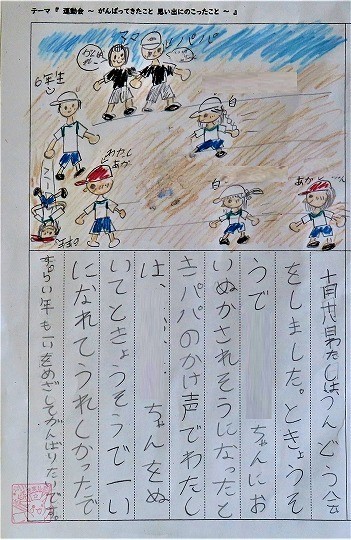 テーマ『 運動会 ～ がんばってきたこと 思い出にのこったこと ～ 』
ママ
パパ
6年生
白
わたし
あか
白
あか
十月廿八日わたしはうんどう会
をしました。ときょうそ
うで ちゃんにお
いぬかされそうになったと
きパパのかけ声でわたし
は、 ちゃんをぬ
いてときょうそうで一い
になれてうれしかったで
す。らい年も一いをめざしてがんばりたいです。